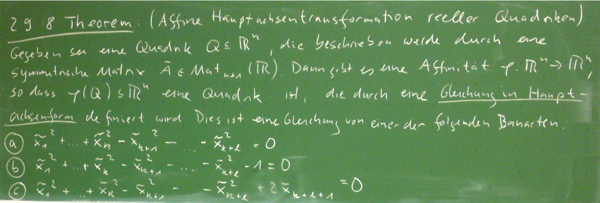 29.8 Theorem. (Affine Hauptachsentransformation reeller Quadriken)
Gegeben sei eine Quadrik Q ⊆ ℝⁿ, die beschrieben werde durch eine
symmetrische Matrix Ã ∈ Matₙ₊₁(ℝ). Dann gibt es eine Affinität φ: ℝⁿ → ℝⁿ,
so dass φ(Q) ⊆ ℝⁿ eine Quadrik ist, die durch eine Gleichung in Haupt-
achsenform definiert wird. Dies ist eine Gleichung von einer der folgenden Bauarten.
(a) x̃₁² + ... + x̃ₖ² - x̃ₖ₊₁² - ... - x̃ₖ₊ₗ² = 0
(b) x̃₁² + ... + x̃ₖ² - x̃ₖ₊₁² - ... - x̃ₖ₊ₗ² - 1 = 0
(c) x̃₁² + ... + x̃ₖ² - x̃ₖ₊₁² - ... - x̃ₖ₊ₗ² + 2x̃ₖ₊ₗ₊₁ = 0